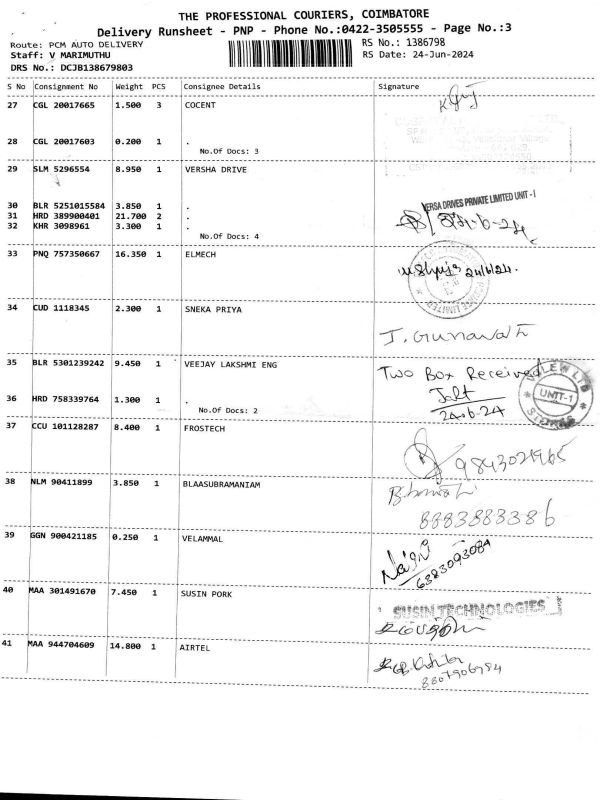 THE PROFESSIONAL COURIERS, COIMBATORE
Delivery Runsheet - PNP - Phone No.:0422-3505555 - Page No.:3
Route: PCM AUTO DELIVERY
Staff: V MARIMUTHU
DRS No.: DCJB138679803
RS No.: 1386798
RS Date: 24-Jun-2024
S No Consignment No Weight PCS Consignee Details Signature
27 CGL 20017665 1.500 3 COCENT
28 CGL 20017603 0.200 1 .
No.Of Docs: 3
29 SLM 5296554 8.950 1 VERSHA DRIVE
VERSA DRIVES PRIVATE LIMITED UNIT - I
30 BLR 5251015584 3.850 1 .
31 HRD 389900401 21.700 2 .
32 KHR 3098961 3.300 1 .
No.Of Docs: 4
33 PNQ 757350667 16.350 1 ELMECH
24/6/24.
34 CUD 1118345 2.300 1 SNEKA PRIYA
J. Gunavathi
35 BLR 5301239242 9.450 1 VEEJAY LAKSHMI ENG
Two Box Received
UNIT-1
36 HRD 758339764 1.300 1 .
24.6.24
No.Of Docs: 2
37 CCU 101128287 8.400 1 FROSTECH
9843021965
38 NLM 90411899 3.850 1 BLAASUBRAMANIAM
8883883386
39 GGN 900421185 0.250 1 VELAMMAL
6383093084
40 MAA 301491670 7.450 1 SUSIN PORK
SUSIN TECHNOLOGIES
41 MAA 944704609 14.800 1 AIRTEL
8807906984